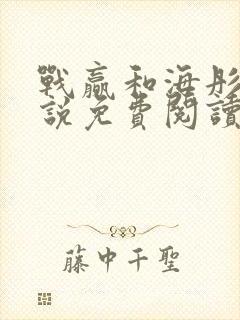 戰贏和海彤
說免費閱讀
藤中千聖